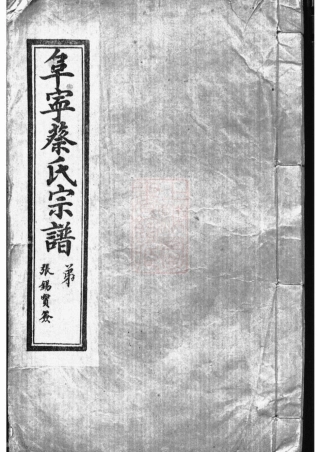 阜寧蔡氏宗譜
弟
張錫賓簽